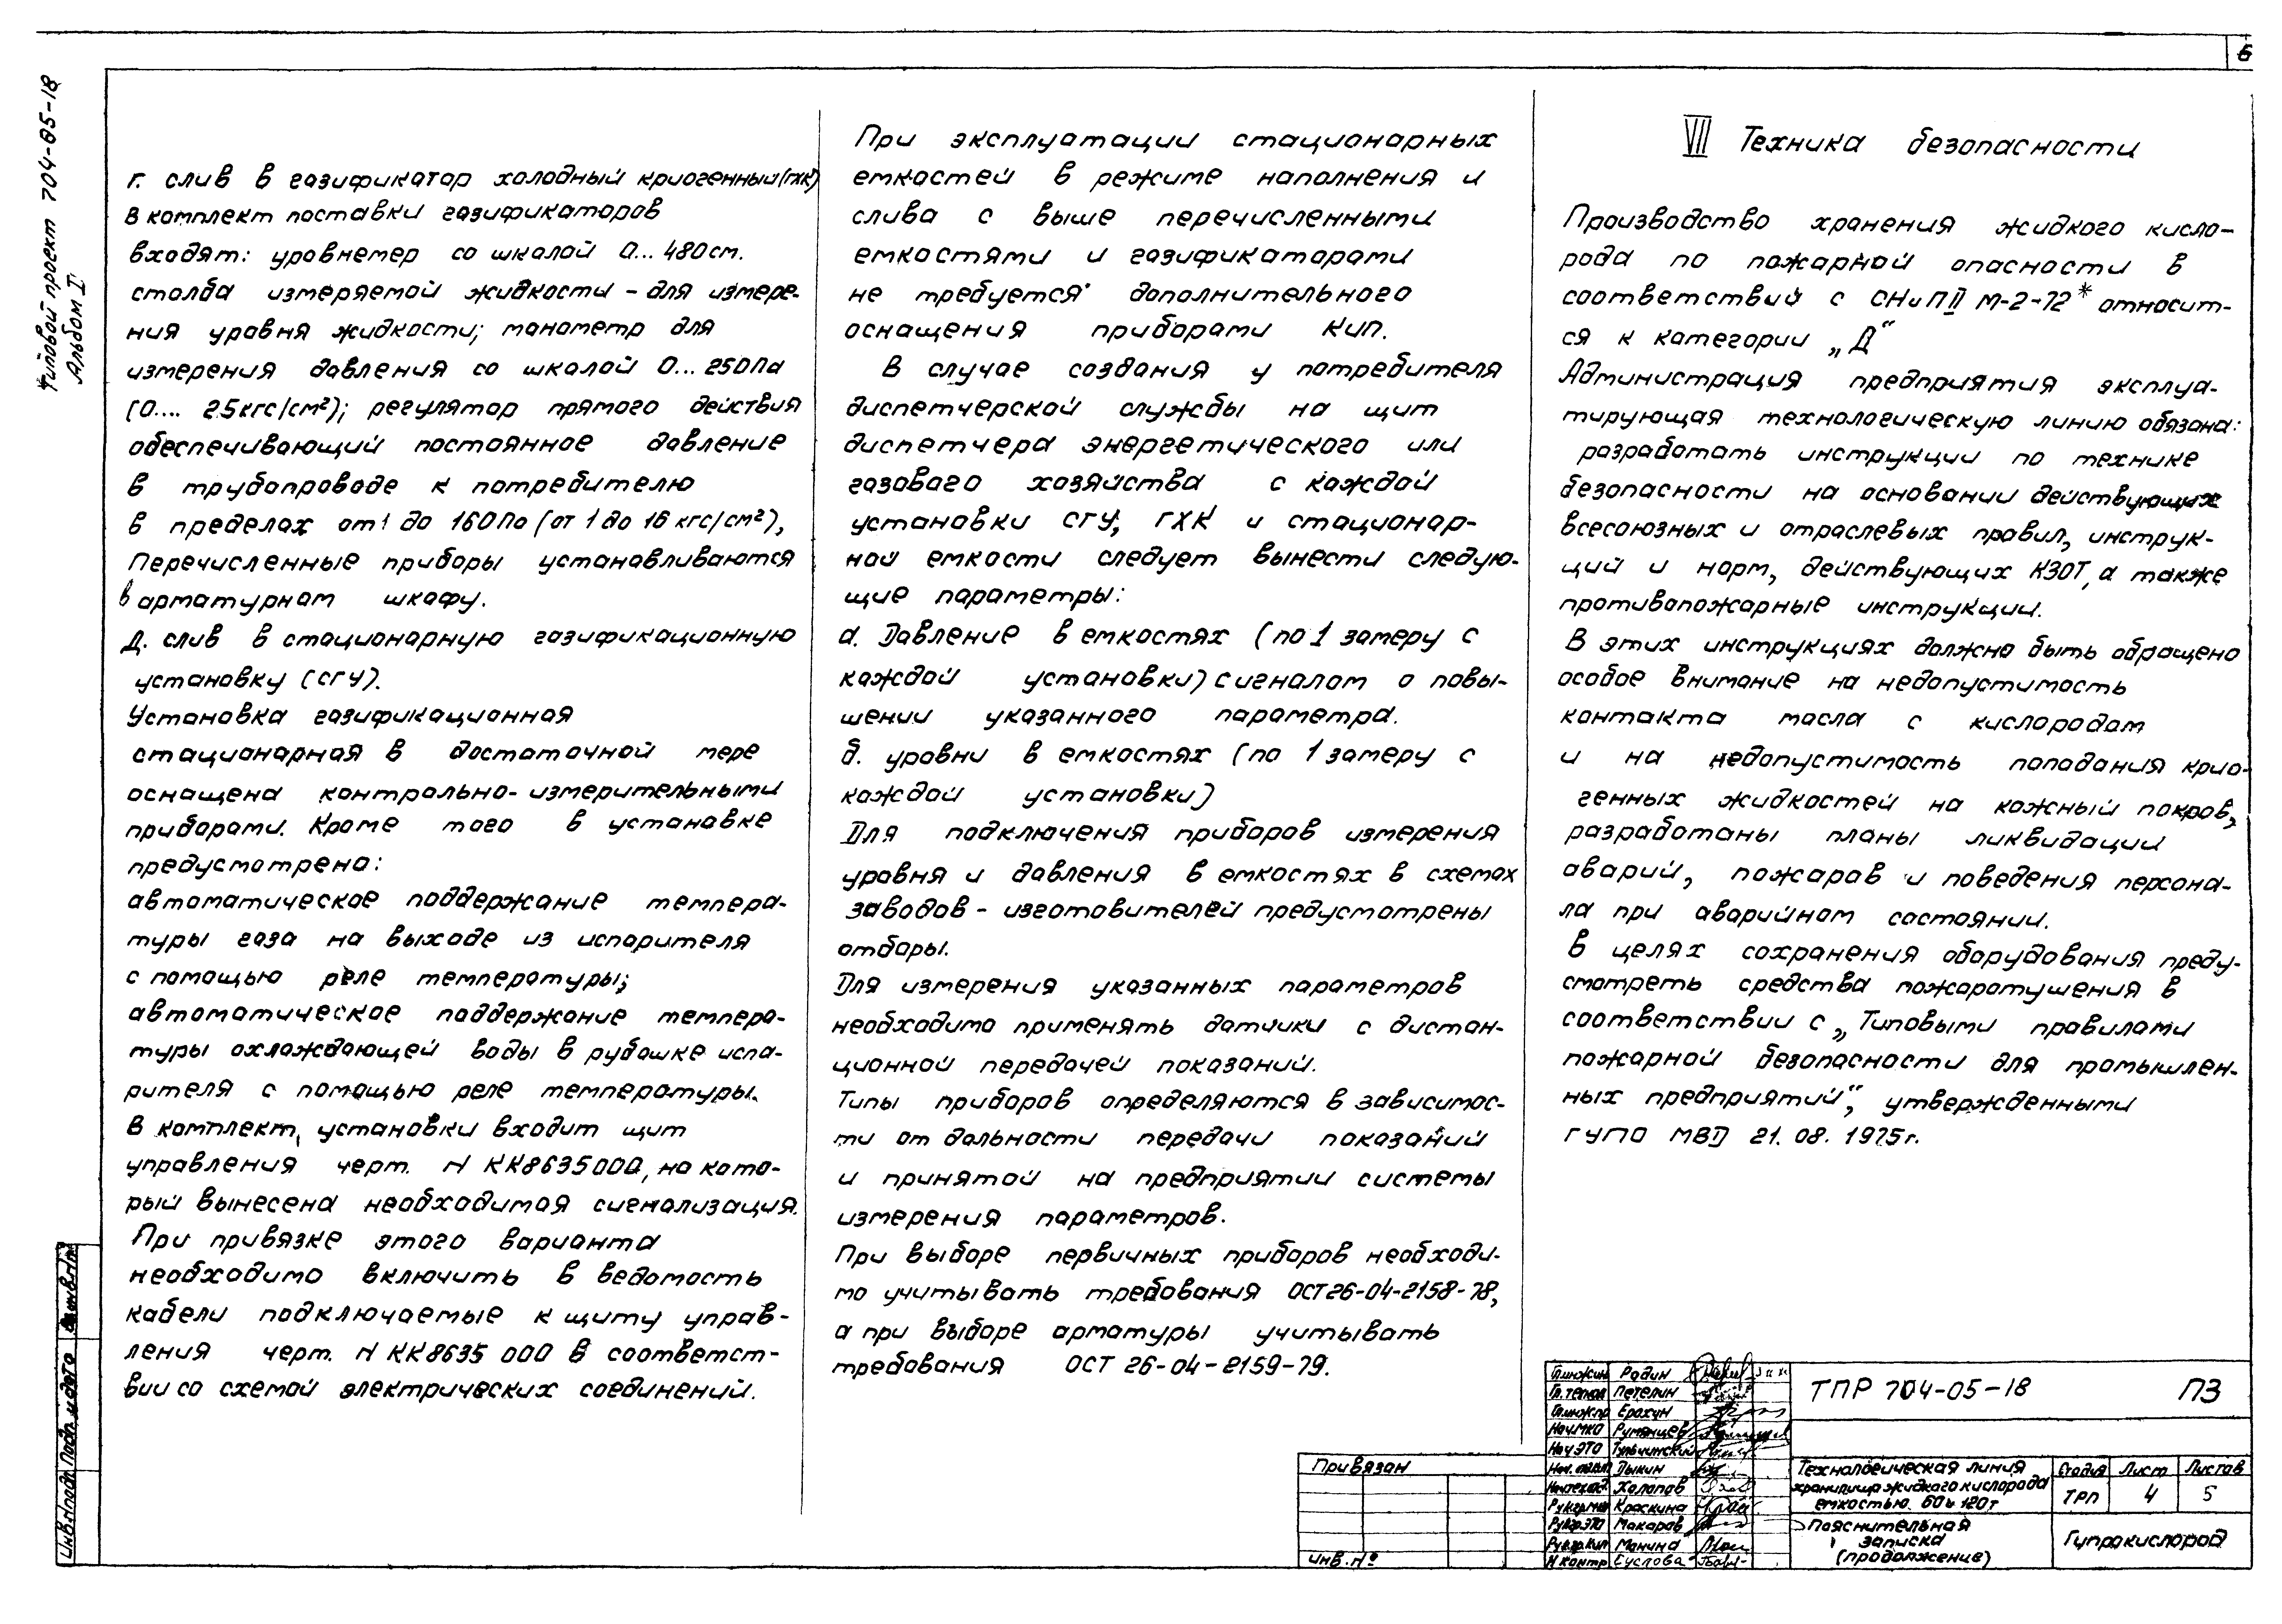 6
Типовой проект 704-05-18
Альбом I
г. слив в газификатор холодный криогенный (ГХК)
В комплект поставки газификаторов
входят: уровнемер со шкалой 0... 480 см.
столба измеряемой жидкости – для измере-
ния уровня жидкости; манометр для
измерения давления со шкалой 0... 250Па
(0.... 25кгс/см²); регулятор прямого действия
обеспечивающий постоянное давление
в трубопроводе к потребителю
в пределах от 1 до 160Па (от 1 до 16 кгс/см²),
Перечисленные приборы устанавливаются
в арматурном шкафу.
Д. слив в стационарную газификационную
установку (СГУ).
Установка газификационная
стационарная в достаточной мере
оснащена контрольно-измерительными
приборами. Кроме того в установке
предусмотрено:
автоматическое поддержание темпера-
туры газа на выходе из испарителя
с помощью реле температуры;
автоматическое поддержание темпера-
туры охлаждающей воды в рубашке испа-
рителя с помощью реле температуры.
В комплект, установки входит щит
управления черт. N КК8635000, на кото-
рый вынесена необходимая сигнализация.
При привязке этого варианта
необходимо включить в ведомость
кабели подключаемые к щиту управ-
ления черт. N КК8635 000 в соответст-
вии со схемой электрических соединений.
При эксплуатации стационарных
емкостей в режиме наполнения и
слива с выше перечисленными
емкостями и газификаторами
не требуется дополнительного
оснащения приборами КИП.
В случае создания у потребителя
диспетчерской службы на щит
диспетчера энергетического или
газового хозяйства с каждой
установки СГУ, ГХК и стационар-
ной емкости следует вынести следую-
щие параметры:
а. Давление в емкостях (по 1 замеру с
каждой установки) сигналом о повы-
шении указанного параметра.
б. уровни в емкостях (по 1 замеру с
каждой установки)
Для подключения приборов измерения
уровня и давления в емкостях в схемах
заводов – изготовителей предусмотрены
отборы.
Для измерения указанных параметров
необходимо применять датчики с дистан-
ционной передачей показаний.
Типы приборов определяются в зависимос-
ти от дальности передачи показаний
и принятой на предприятии системы
измерения параметров.
При выборе первичных приборов необходи-
мо учитывать требования ОСТ 26-04-2158-78,
а при выборе арматуры учитывать
требования ОСТ 26-04-2159-79.
VII Техника безопасности
Производство хранения жидкого кисло-
рода по пожарной опасности в
соответствий с СНиП II М-2-72* относит-
ся к категории „Д“
Администрация предприятия эксплуа-
тирующая технологическую линию обязана:
разработать инструкции по технике
безопасности на основании действующих
всесоюзных и отраслевых правил, инструк-
ций и норм, действующих КЗОТ, а также
противопожарные инструкции.
В этих инструкциях должно быть обращено
особое внимание на недопустимость
контакта масла с кислородом
и на недопустимость попадания крио-
генных жидкостей на кожный покров,
разработаны планы ликвидации
аварий, пожаров и поведения персона-
ла при аварийном состоянии.
В целях сохранения оборудования преду-
смотреть средства пожаротушения в
соответствии с „Типовыми правилами
пожарной безопасности для промышлен-
ных предприятий“, утвержденными
ГУПО МВД 21.08.1975г.
Инв.Nподл. Подп. и дата Взам.инв.N
Привязан
Инв. №
Гл.инж.ин Родин
Гл.технол Петелин
Гл.инж.пр Ерохин
Нач.МКО Румянцев
Нач ЭТО Тульчинский
Дыкин
Холопов
Краскина
Рук.гр.ЭТО Макаров
Рук.гр.КИП Манина
Н.контр Суслова
ТПР 704-05-18 ПЗ
Технологическая линия
хранилища жидкого кислорода
емкостью 60 и 120т
Стадия Лист Листов
ТРП 4 5
Пояснительная
записка
(продолжение)
Гипрокислород